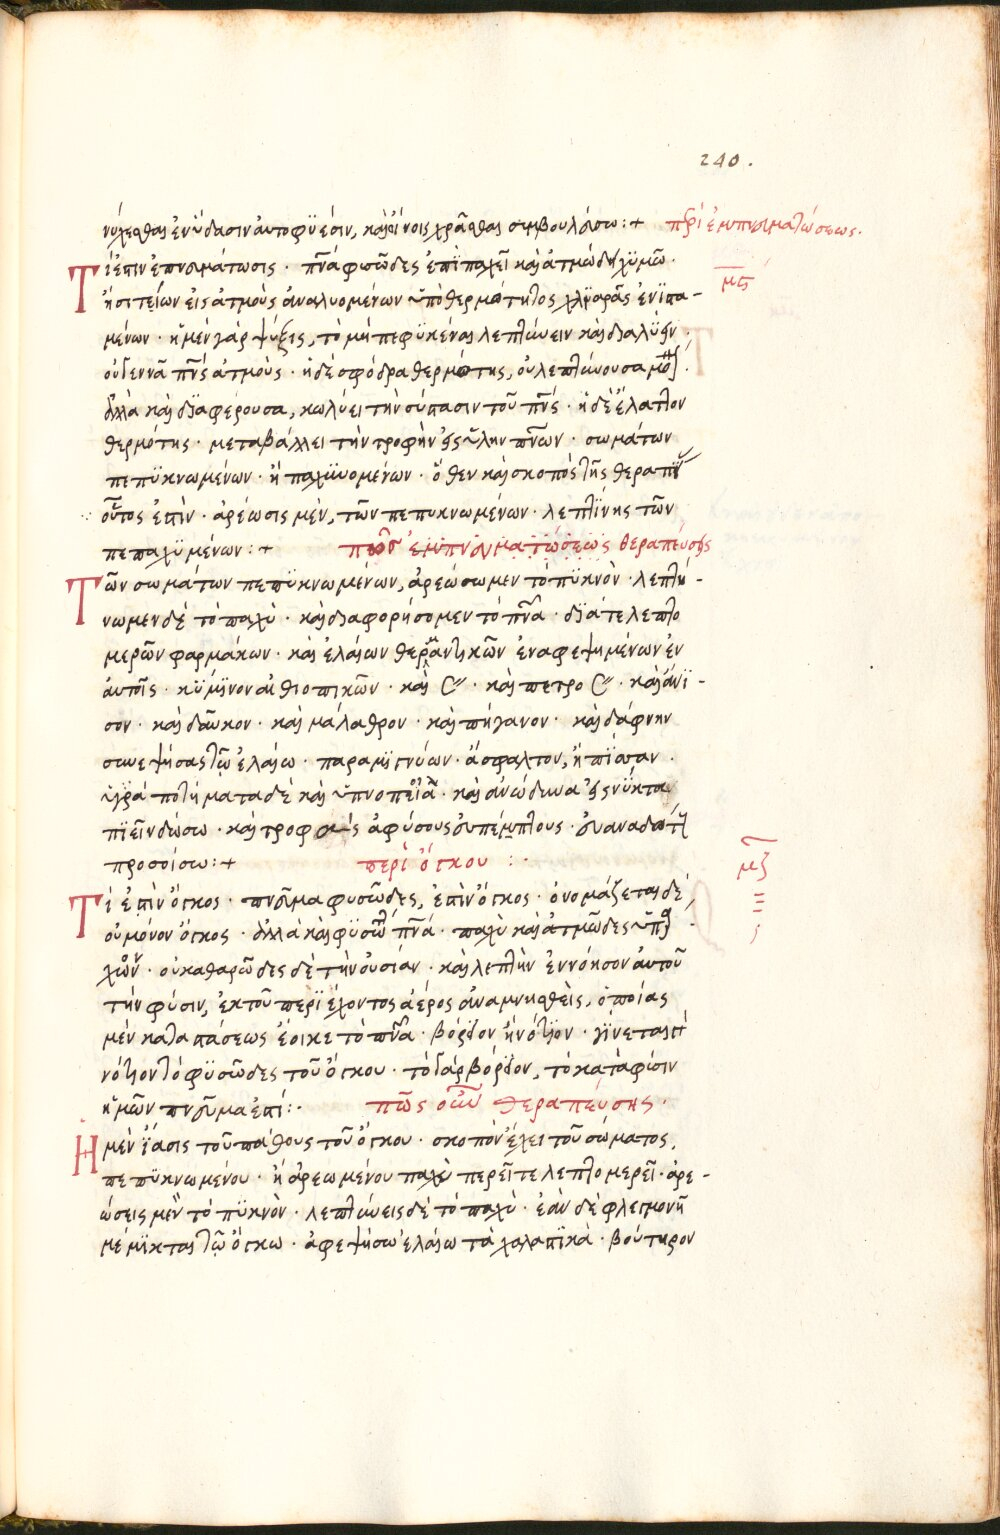 240.
νήχεσθαι ἐν ὕδασιν αὐτοφυέσιν, καὶ οἴνοις χρᾶσθαι συμβουλεύσω :+ περὶ ἐμπνευματώσεως.
Τί ἐστιν ἐμπνευμάτωσις · πνα φυσῶδες ἐπὶ παχεῖ καὶ ἀτμώδει χυμῶ ·
μϛ
ἢ σιτείων εἰς ἀτμοὺς ἀναλυομένων ὑπὸ θερμότητος χλιαρᾶς ἐνϊστα-
μένων · ἡ μὲν γὰρ ψύξις, τὸ μὴ πεφϋκέναι λεπτύνειν καὶ διαλύειν ·
οὐ γεννᾶ πνς ἀτμοὺς · ἡ δὲ σφόδρα θερμότης, οὐ λεπτύνουσα μόνον ·
ἀλλὰ καὶ διαφέρουσα, κωλύει τὴν σύστασιν τοῦ πνς · ἡ δὲ ἔλαττον
θερμότης · μεταβάλλει τὴν τροφὴν εἰς ὕλην πνων · σωμάτων
πεπϋκνωμένων · ἢ παχϋνομένων · ὅθεν καὶ σκοπὸς τῆς θεραπεί
οὗτος ἐστὶν · ἀρέωσις μὲν, τῶν πεπυκνωμένων · λεπτύνσης τῶν
πεπαχϋμένων :+ πρὸς ἐμπνευματώσεως θεραπεύσης
Τῶν σωμάτων πεπϋκνωμένων, ἀρεώσωμεν τὸ πϋκνὸν · λεπτύ-
νωμεν δὲ τὸ παχὺ · καὶ διαφορήσομεν τὸ πνα · διά τε λεπτο
μερῶν φαρμάκων · καὶ ἐλαίων θερμαντικῶν ἐναφεψημένων ἐν
αὐτοῖς · κϋμϊνον αἰθιοπικῶν · καὶ · καὶ πετρο · καὶ ἄνϊ-
σον · καὶ δαῦκον · καὶ μάλαθρον · καὶ πήγανον · καὶ δάφνην
συνεψήσας τῷ ἐλαίω · παραμϊγνύων · ἄσφαλτον, ἢ πϊσσαν ·
ὑγρὰ ποτήματα δὲ καὶ ὑπνοποιὰ · καὶ ἀνώδυνα εἰς νύκτα
πϊεῖν δώσω · καὶ τροφὰς ἀφύσους εὐπέμπτους · εὐαναδότους
προσοίσω :+ περὶ ὄγκου :·
μζ
Τί ἐστὶν ὄγκος · πνεῦμα φυσῶδες, ἐστὶν ὄγκος · ὀνομάζεται δὲ
οὐ μόνον ὄγκος · ἀλλὰ καὶ φϋσῶδες πνα · παχὺ καὶ ἀτμῶδες ὑπάρ
χων · οὐ καθαρῶδες δὲ τὴν οὐσίαν · καὶ λεπτὴν ἐννόησον αὐτοῦ
τὴν φύσιν, ἐκ τοῦ περϊέχοντος ἀέρος ἀναμνησθεὶς, ὁποίας
μὲν καταστάσεως ἔοικε τὸ πνα · βόρειον ἢ νότϊον · γϊνεται
νότιον τὸ φϋσῶδες τοῦ ὄγκου · τὸ γὰρ βόρειον, τὸ κατὰ φύσιν
ἡμῶν πνεῦμα ἐστί :· πῶς οὖν θεραπεύσης ·
Ἡ μὲν ἴασις τοῦ πάθους τοῦ ὄγκου · σκοπὸν ἔχει τοῦ σώματος,
πεπϋκνωμένου · ἢ ἀρεωμένου παχὺ περεῖ τε λεπτομερεῖ · ἀρε-
ώσεις μὲν τὸ πϋκνὸν · λεπτύνεις δὲ τὸ παχὺ · ἐὰν δὲ φλεγμονὴ
μέμϊκται τῷ ὄγκω · ἀφεψήσω ἐλαίω τὰ χαλαστϊκὰ · βούτηρον